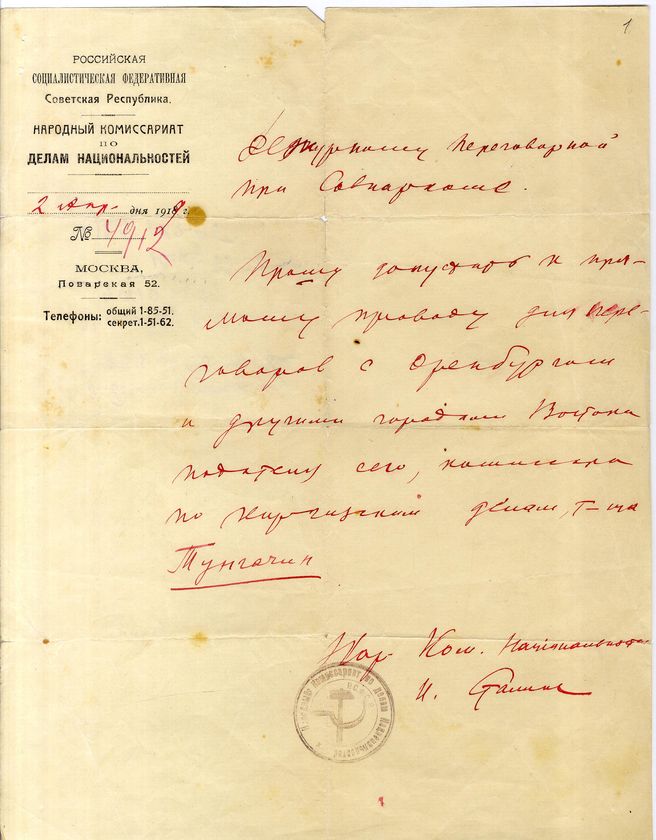 1
РОССИЙСКАЯ
СОЦИАЛИСТИЧЕСКАЯ ФЕДЕРАТИВНАЯ
Советская Республика.
НАРОДНЫЙ КОМИССАРИАТ
ПО
ДЕЛАМ НАЦИОНАЛЬНОСТЕЙ
2 Апр. дня 1919 г.
№ 4912
МОСКВА,
Поварская 52.
Телефоны: общий 1-85-51.
секрет. 1-51-62.
Дежурному Переговорной
при Совнаркоме.
Прошу допустить к пря-
мому проводу для пере-
говоров с Оренбургом
и другими городами Востока
подателя сего, комиссара
по киргизским делам, т-ща
Тунгачин
Нар. Ком. Национальностей
И. Сталин
Народный Комиссариат по делам Национальностей